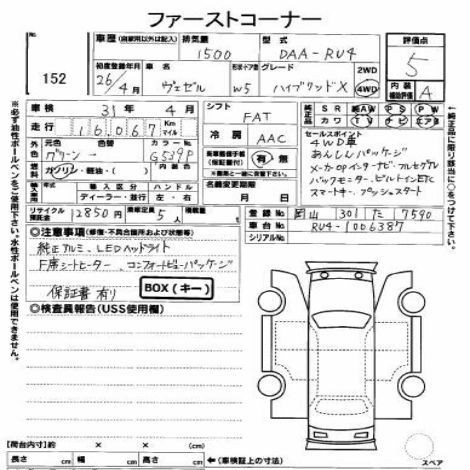 ファーストコーナー
No. 152
車歴(自家用以外は記入) 排気量 1500 型式 DAA-RU4 評価点 5
初度登録年月 26/4月 車名 ヴェゼル 形状ドア数 W5 グレード ハイブリッドX 2WD 4WD 内装補助評価 A
車検 31年4月 シフト FAT 純正品 SR 純AW PS PW
走行 16,067 Km マイル 冷房 AAC カワ TV ナビ エアB
外色 元色 グリーン 色 カラーNo. G539P 内色
セールスポイント
4WD車
あんしんパッケージ
メーカOPインターナビ・フルセグTV
バックモニター・ビルトインETC
スマートキー、プッシュスタート
新車整備手帳(保証書付) 有・無
燃料 ガソリン・軽油・( )
名義変更期限 月 日
輸入車 輸入区分 ディーラー・並行 ハンドル 左・右
リサイクル預託金 12850円 乗車定員 5人 積載量
登録No. 岡山 301 た 7590
車台No. RU4-1006387
シリアルNo.
◎注意事項(修復・不具合箇所および状態等)
純正アルミ、LEDヘッドライト
F席シートヒーター、コンフォートビューパッケージ
保証書有り BOX(キー)
◎検査員報告(USS使用欄)
【荷台内寸】約 × ×
長さ cm 幅 cm 高さ cm ←(車検証上の寸法)
スペア
※必ず油性ボールペンをご使用下さい。水性ボールペンは使用できません。
↑純正品に限り該当に○をつけて下さい。